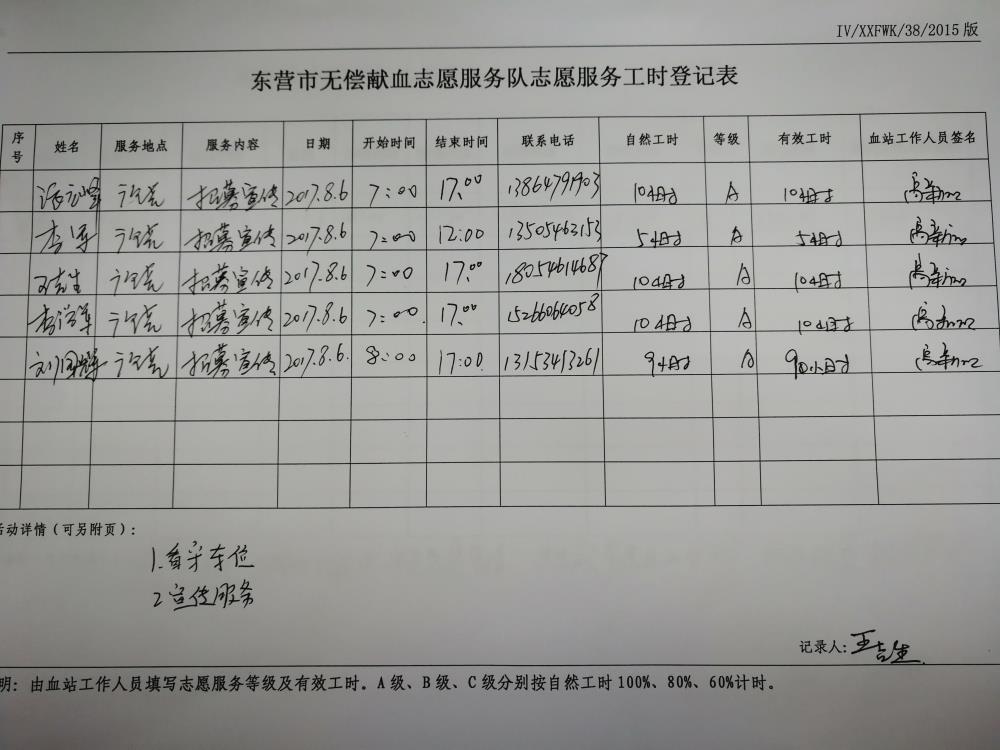 IV/XXFWK/38/2015版
东营市无偿献血志愿服务队志愿服务工时登记表
序号 姓名 服务地点 服务内容 日期 开始时间 结束时间 联系电话 自然工时 等级 有效工时 血站工作人员签名
招募宣传 2017.8.6 7:00 17:00 13864791903 10小时 A 10小时
李军 招募宣传 2017.8.6 7:00 12:00 13505463153 5小时 A 5小时
王吉生 招募宣传 2017.8.6 7:00 17:00 18054614687 10小时 A 10小时
招募宣传 2017.8.6 7:00 17:00 15266064058 10小时 A 10小时
刘国辉 招募宣传 2017.8.6 8:00 17:00 13153413261 9小时 A 小时
活动详情(可另附页):
1.看守车位
2 宣传服务
记录人: 王吉生
明: 由血站工作人员填写志愿服务等级及有效工时。A级、B级、C级分别按自然工时100%、80%、60%计时。